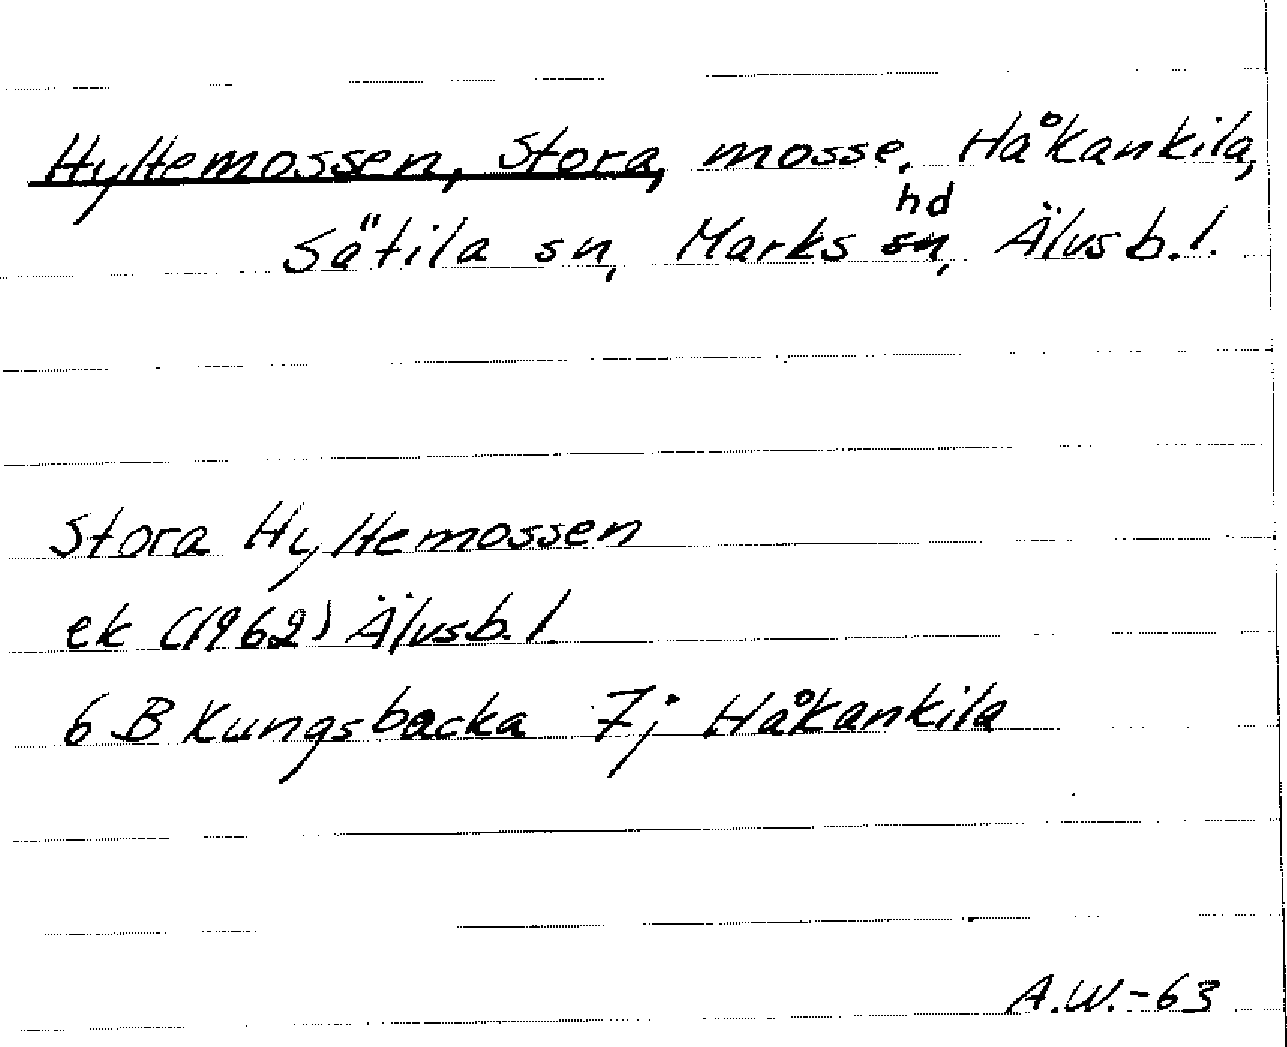 Hyltemossen, Stora, mosse, Håkankila,
Sätila sn, Marks sn hd, Älvsb. l.
Stora Hyltemossen
ek (1962) Älvsb. l
6 B Kungsbacka 7j Håkankila
A.W.-63